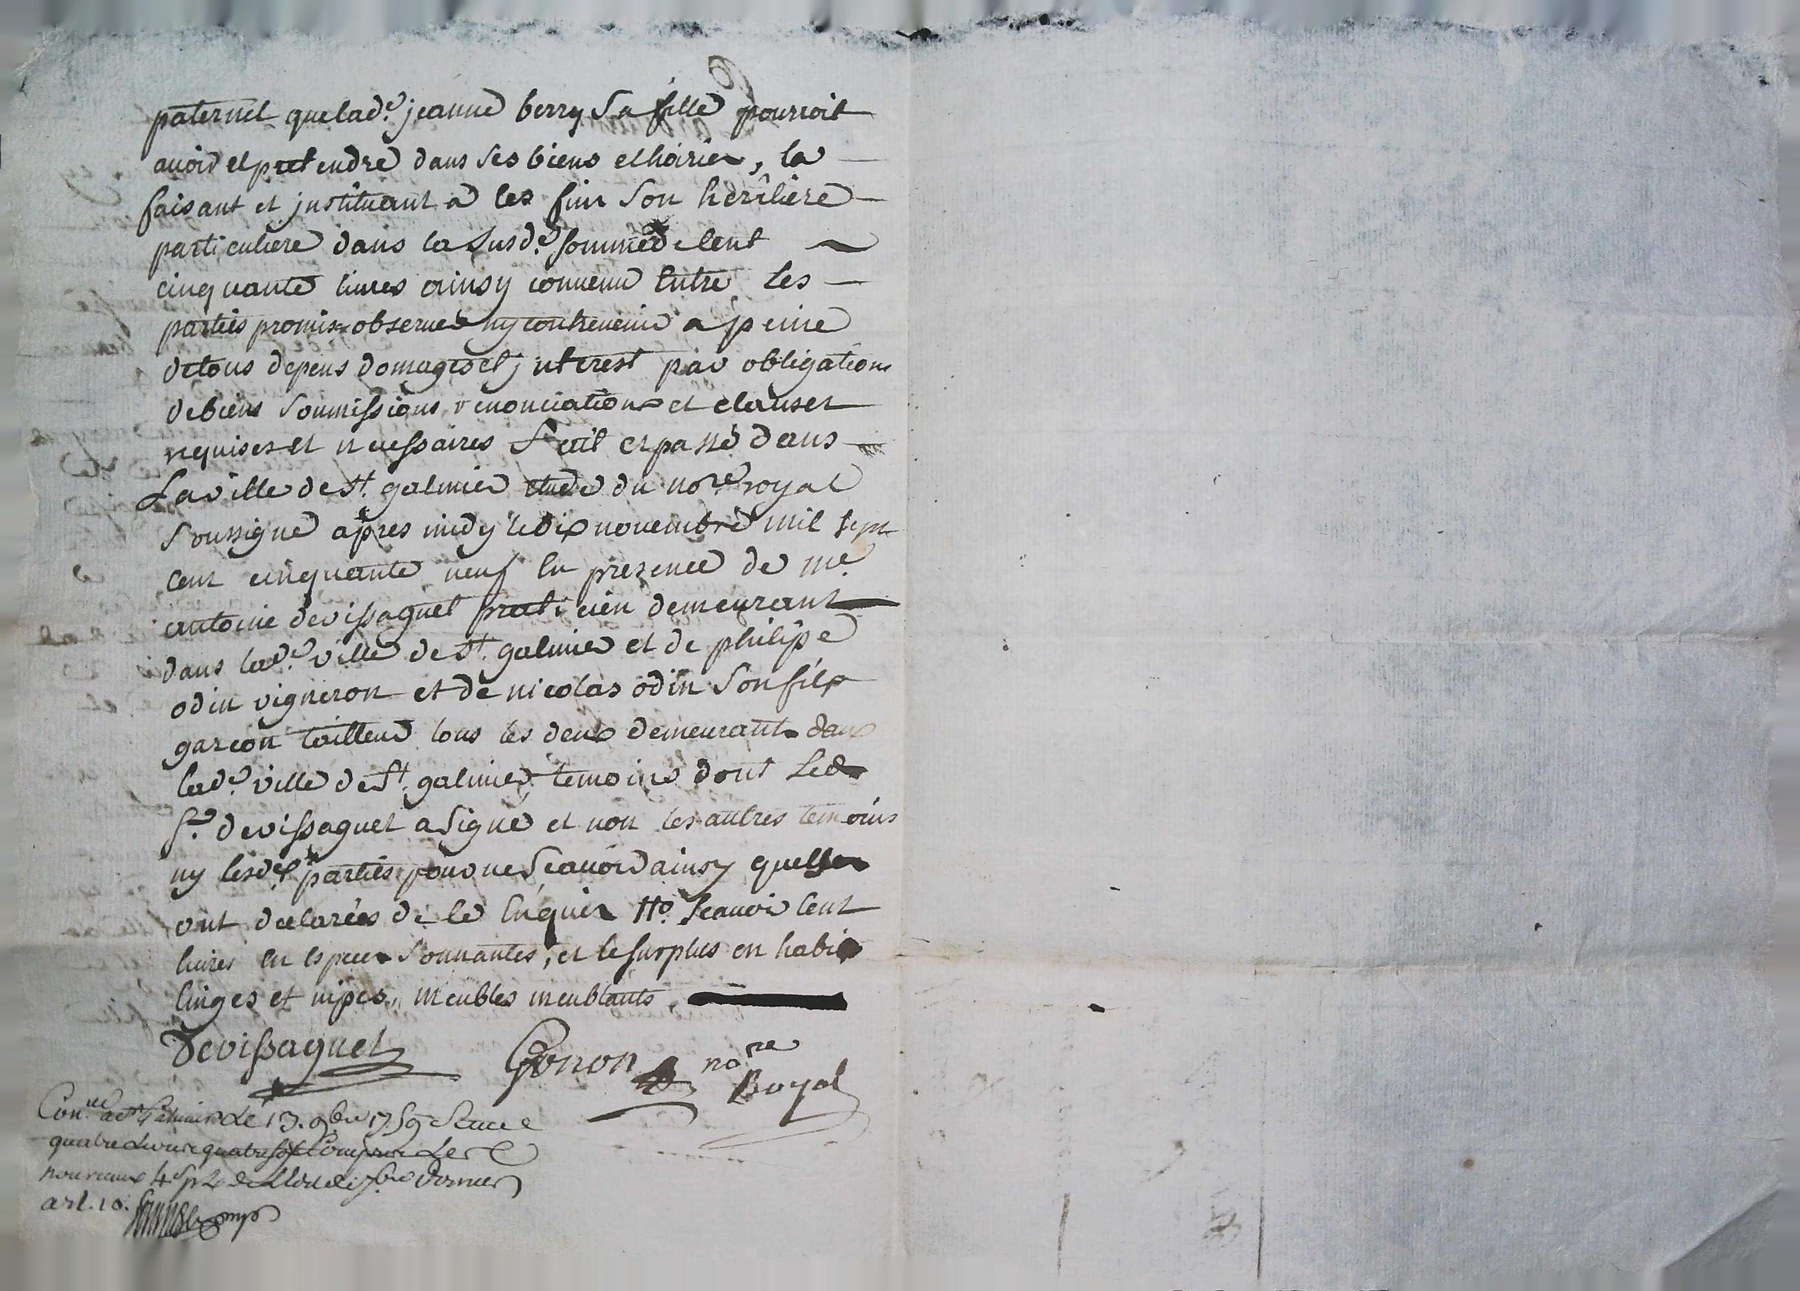 paternel que lad.e jeanne berry sa fille pourroit
avoir et pretendre dans ses biens et hoirie, la
faisant et jnstituant a ces fins son heritiere
particuliere dans la susd.e somme de cent
cinquante livres ainsy convenu entre les
parties promis observer ny contrevenir a peine
de tous depens domages et jnterest par obligations
de biens soumissions, renonciations et clauses
requises et necessaires fait et passé dans
la ville de st. galmier etude du no.re royal
soussigné apres midy le dix novembre mil sept
cent cinquante neuf en presence de me.
antoine devissaguet praticien demeurant
dans lad.e ville de st. galmier et de philipe
odin vigneron et de nicolas odin son fils
garcon tailleur tous les deux demeurants dans
lad.e ville de st. galmier temoins dont led.
sr. devissaguet a signé et non les autres temoins
ny lesd. parties pour ne scavoir ainsy quelles
ont declarées de ce enquis tto. scavoir cent
livres en especes sonnantes, et le surplus en habits
linges et nipes, meubles meublants
Devissaguet Gonon no.re Royal
Con.lé a st Galmier le 13. 9bre 1759 Reçu
quatre livres quatre sols compris les
nouveaux 4s p L de l'Edit de 7bre dernier
art. 10.